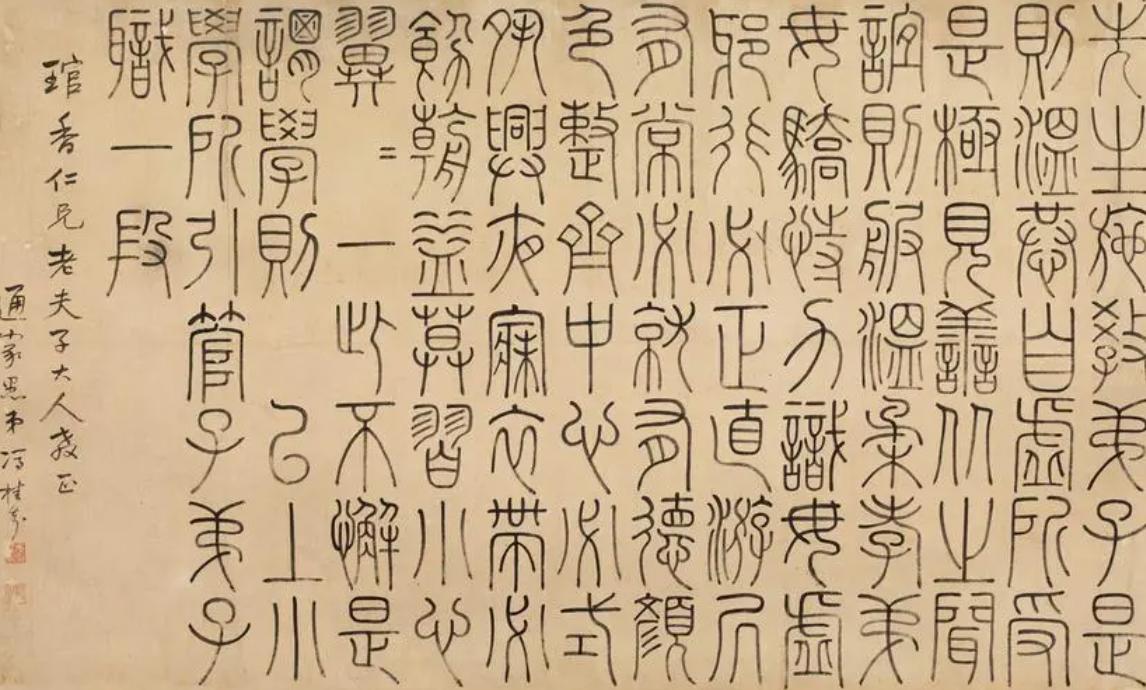 先生施教弟子是
則溫恭自虛所受
是極見善从之聞
誼則服溫柔孝弟
毋驕恃力識毋虛
邪行必正直游凥
有常必就有德顏
色整齊中心必式
夙興夜寐衣帶必
飭朝益莫習小心
翼=一此不懈是
謂學則 已上小
學所引管子弟子
職一段
琯香仁兄老夫子大人教正
通家愚弟馮桂芬